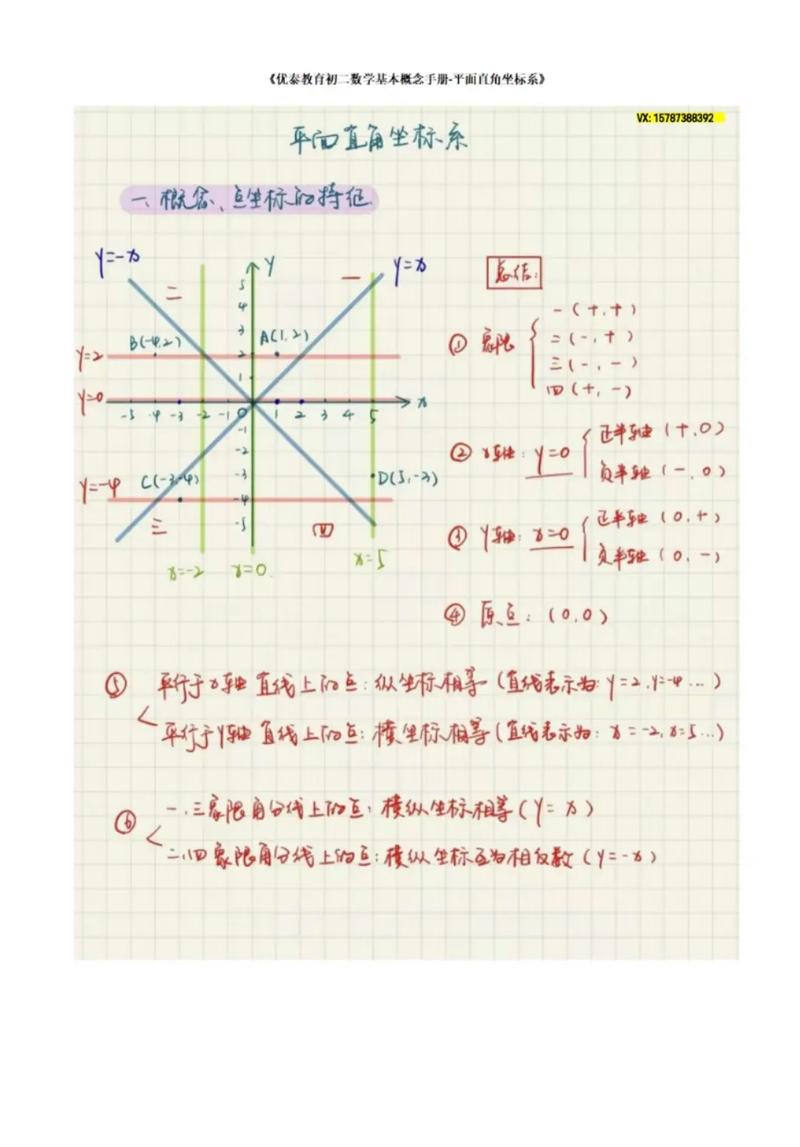 《优泰教育初二数学基本概念手册-平面直角坐标系》
VX: 15787388392
平面直角坐标系
一、概念、点坐标的特征
y=-x
y
y=x
二
一
5
4
3
B(-4,2)
A(1,2)
y=2
2
1
y=0
-5 -4 -3 -2 -1 0 1 2 3 4 5 x
-1
-2
C(-3,-4)
-3
D(5,-3)
y=-4
-4
-5
三
四
x=-2
x=0
x=5
总结:
① 象限
一(+,+)
二(-,+)
三(-,-)
四(+,-)
② x轴: y=0
正半轴(+,0)
负半轴(-,0)
③ y轴: x=0
正半轴(0,+)
负半轴(0,-)
④ 原点:(0,0)
⑤ 平行于x轴直线上的点:纵坐标相等(直线表示为:y=2,y=-4...)
平行于y轴直线上的点:横坐标相等(直线表示为:x=-2,x=5...)
⑥ 一、三象限角分线上的点:横纵坐标相等(y=x)
二、四象限角分线上的点:横纵坐标互为相反数(y=-x)